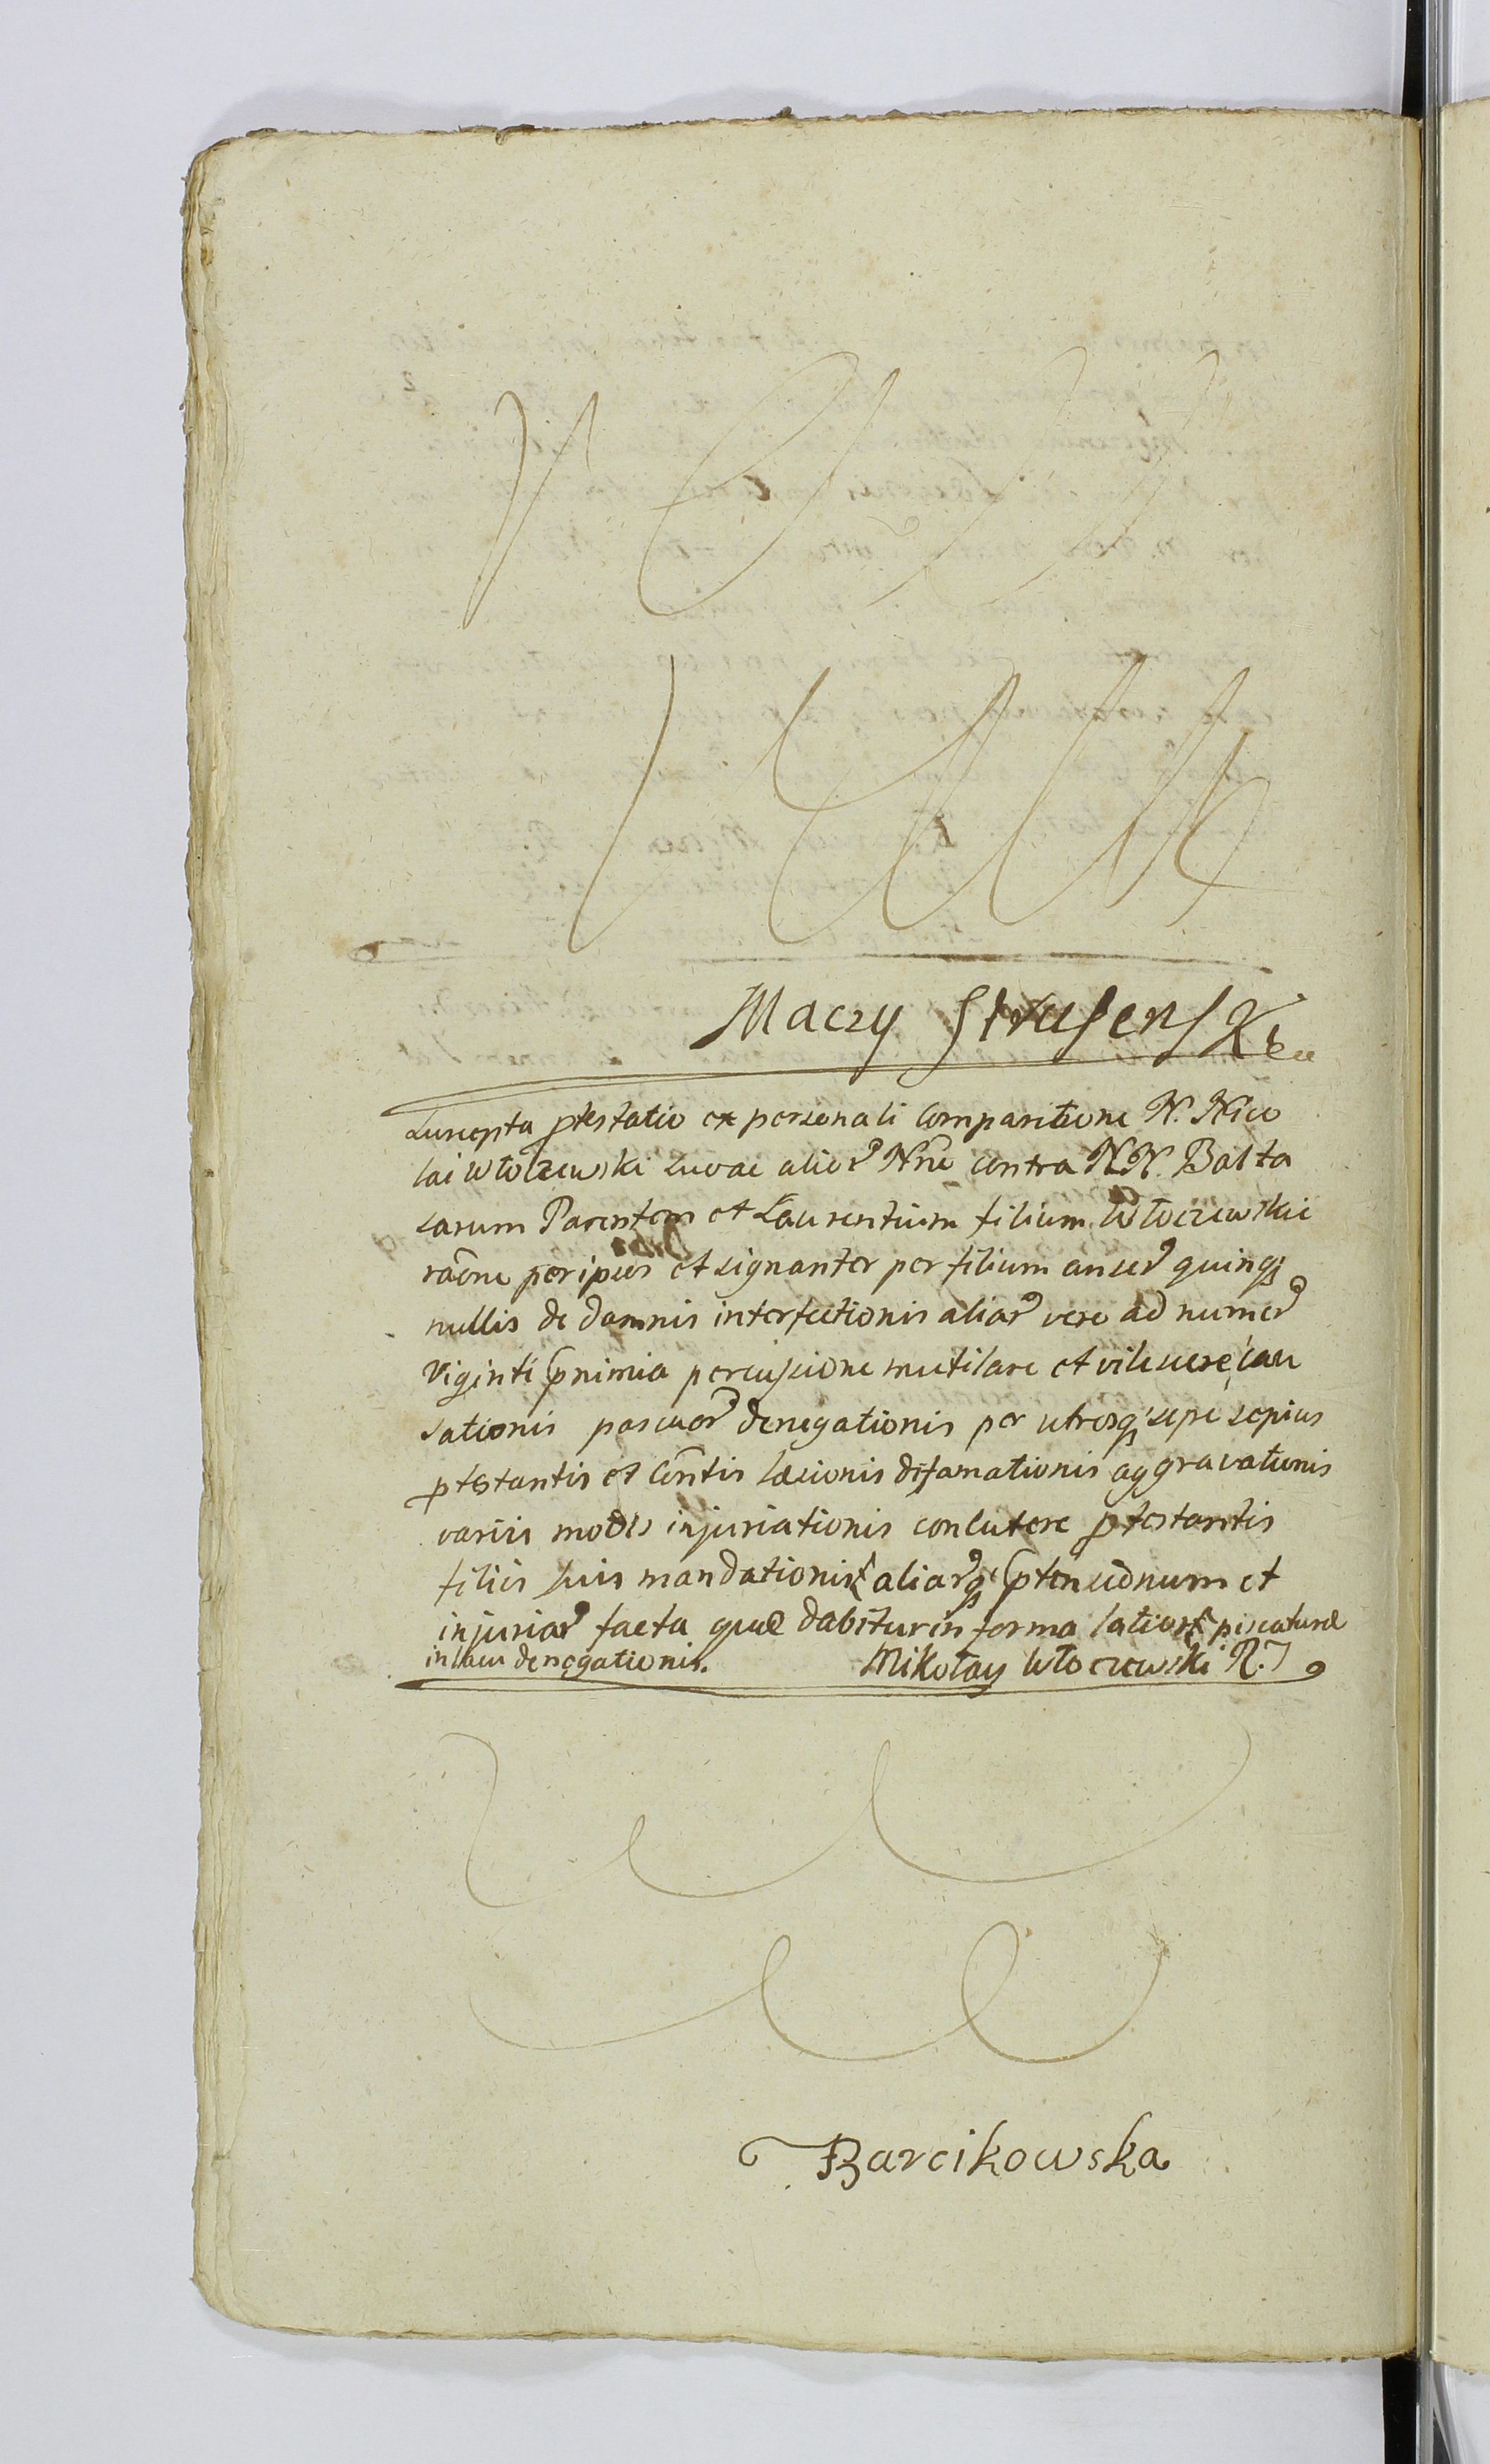 Maczy Strusensk
Suscepta ptestatio ex personali Comparitione N. Nico
lai Włoczewski suo ac alior Nne contra N.N. Balta
sarum Parentem et Laurentium filium Włoczewskie
raone per ipsos et signanter per filium anser quinq
nullis de damnis interfectionis aliar vero ad numer
Viginti pnimia percussione mutilare et vilescere cau
sationis pascuor denegationis per utrosq sepe sepius
ptestantis et Contis læsionis difamationis aggravationis
variis modis injuriationis concutere ptestantis
filiis suis mandationis aliarq ptensionum et
injuriar facta quæ dabitur in forma latiori piscaturæ
in lacu denegationis. Mikołay Włoczewski
Barcikowska